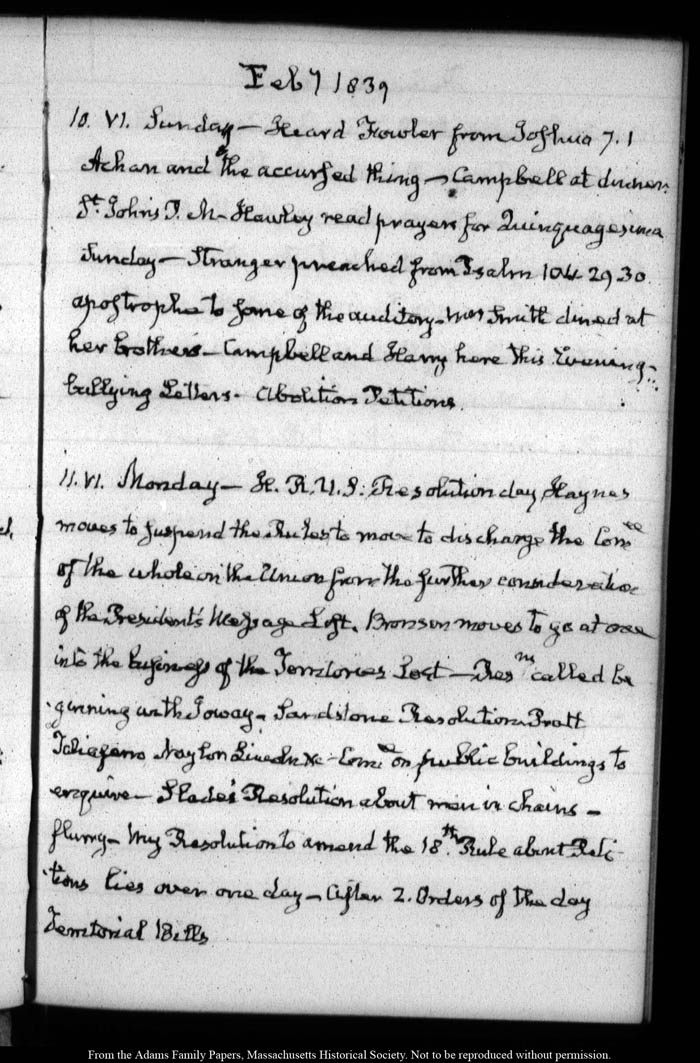 Feby 1839
10. VI. Sunday — Heard Fowler from Joshua 7. 1
Achan and the accursed thing — Campbell at dinner.
St. John's P. M. Hawley read prayers for Quinquagesima
Sunday — Stranger preached from Psalm 104. 29. 30.
apostrophe to some of the auditory — Mrs Smith dined at
her brother's — Campbell and Harry here this Evening —
bullying Letters. Abolition Petitions.
11. VI. Monday — H. R. U. S: Resolution day, Haynes
moves to suspend the Rules to move to discharge the Comee
of the whole on the Union from the further consideration
of the President's Message Lost. Bronson moves to go at once
into the business of the Territories Lost — Resns called be
ginning with Ioway — Sandstone Resolution Pratt
Taliaferro Naylor Lincoln &c — Comee on public buildings to
enquire — Slade's Resolution about men in chains —
flurry — My Resolution to amend the 18th. Rule about Peti-
tions lies over one day — After 2. Orders of the day
Territorial Bills
From the Adams Family Papers, Massachusetts Historical Society. Not to be reproduced without permission.